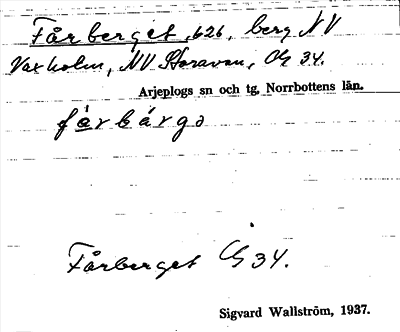 Fårberget, 626, berg NV
Vaxholm, NV Storavan, G 34.
Arjeplogs sn och tg, Norrbottens län.
fárbárgə
Fårberget G 34.
Sigvard Wallström, 1937.